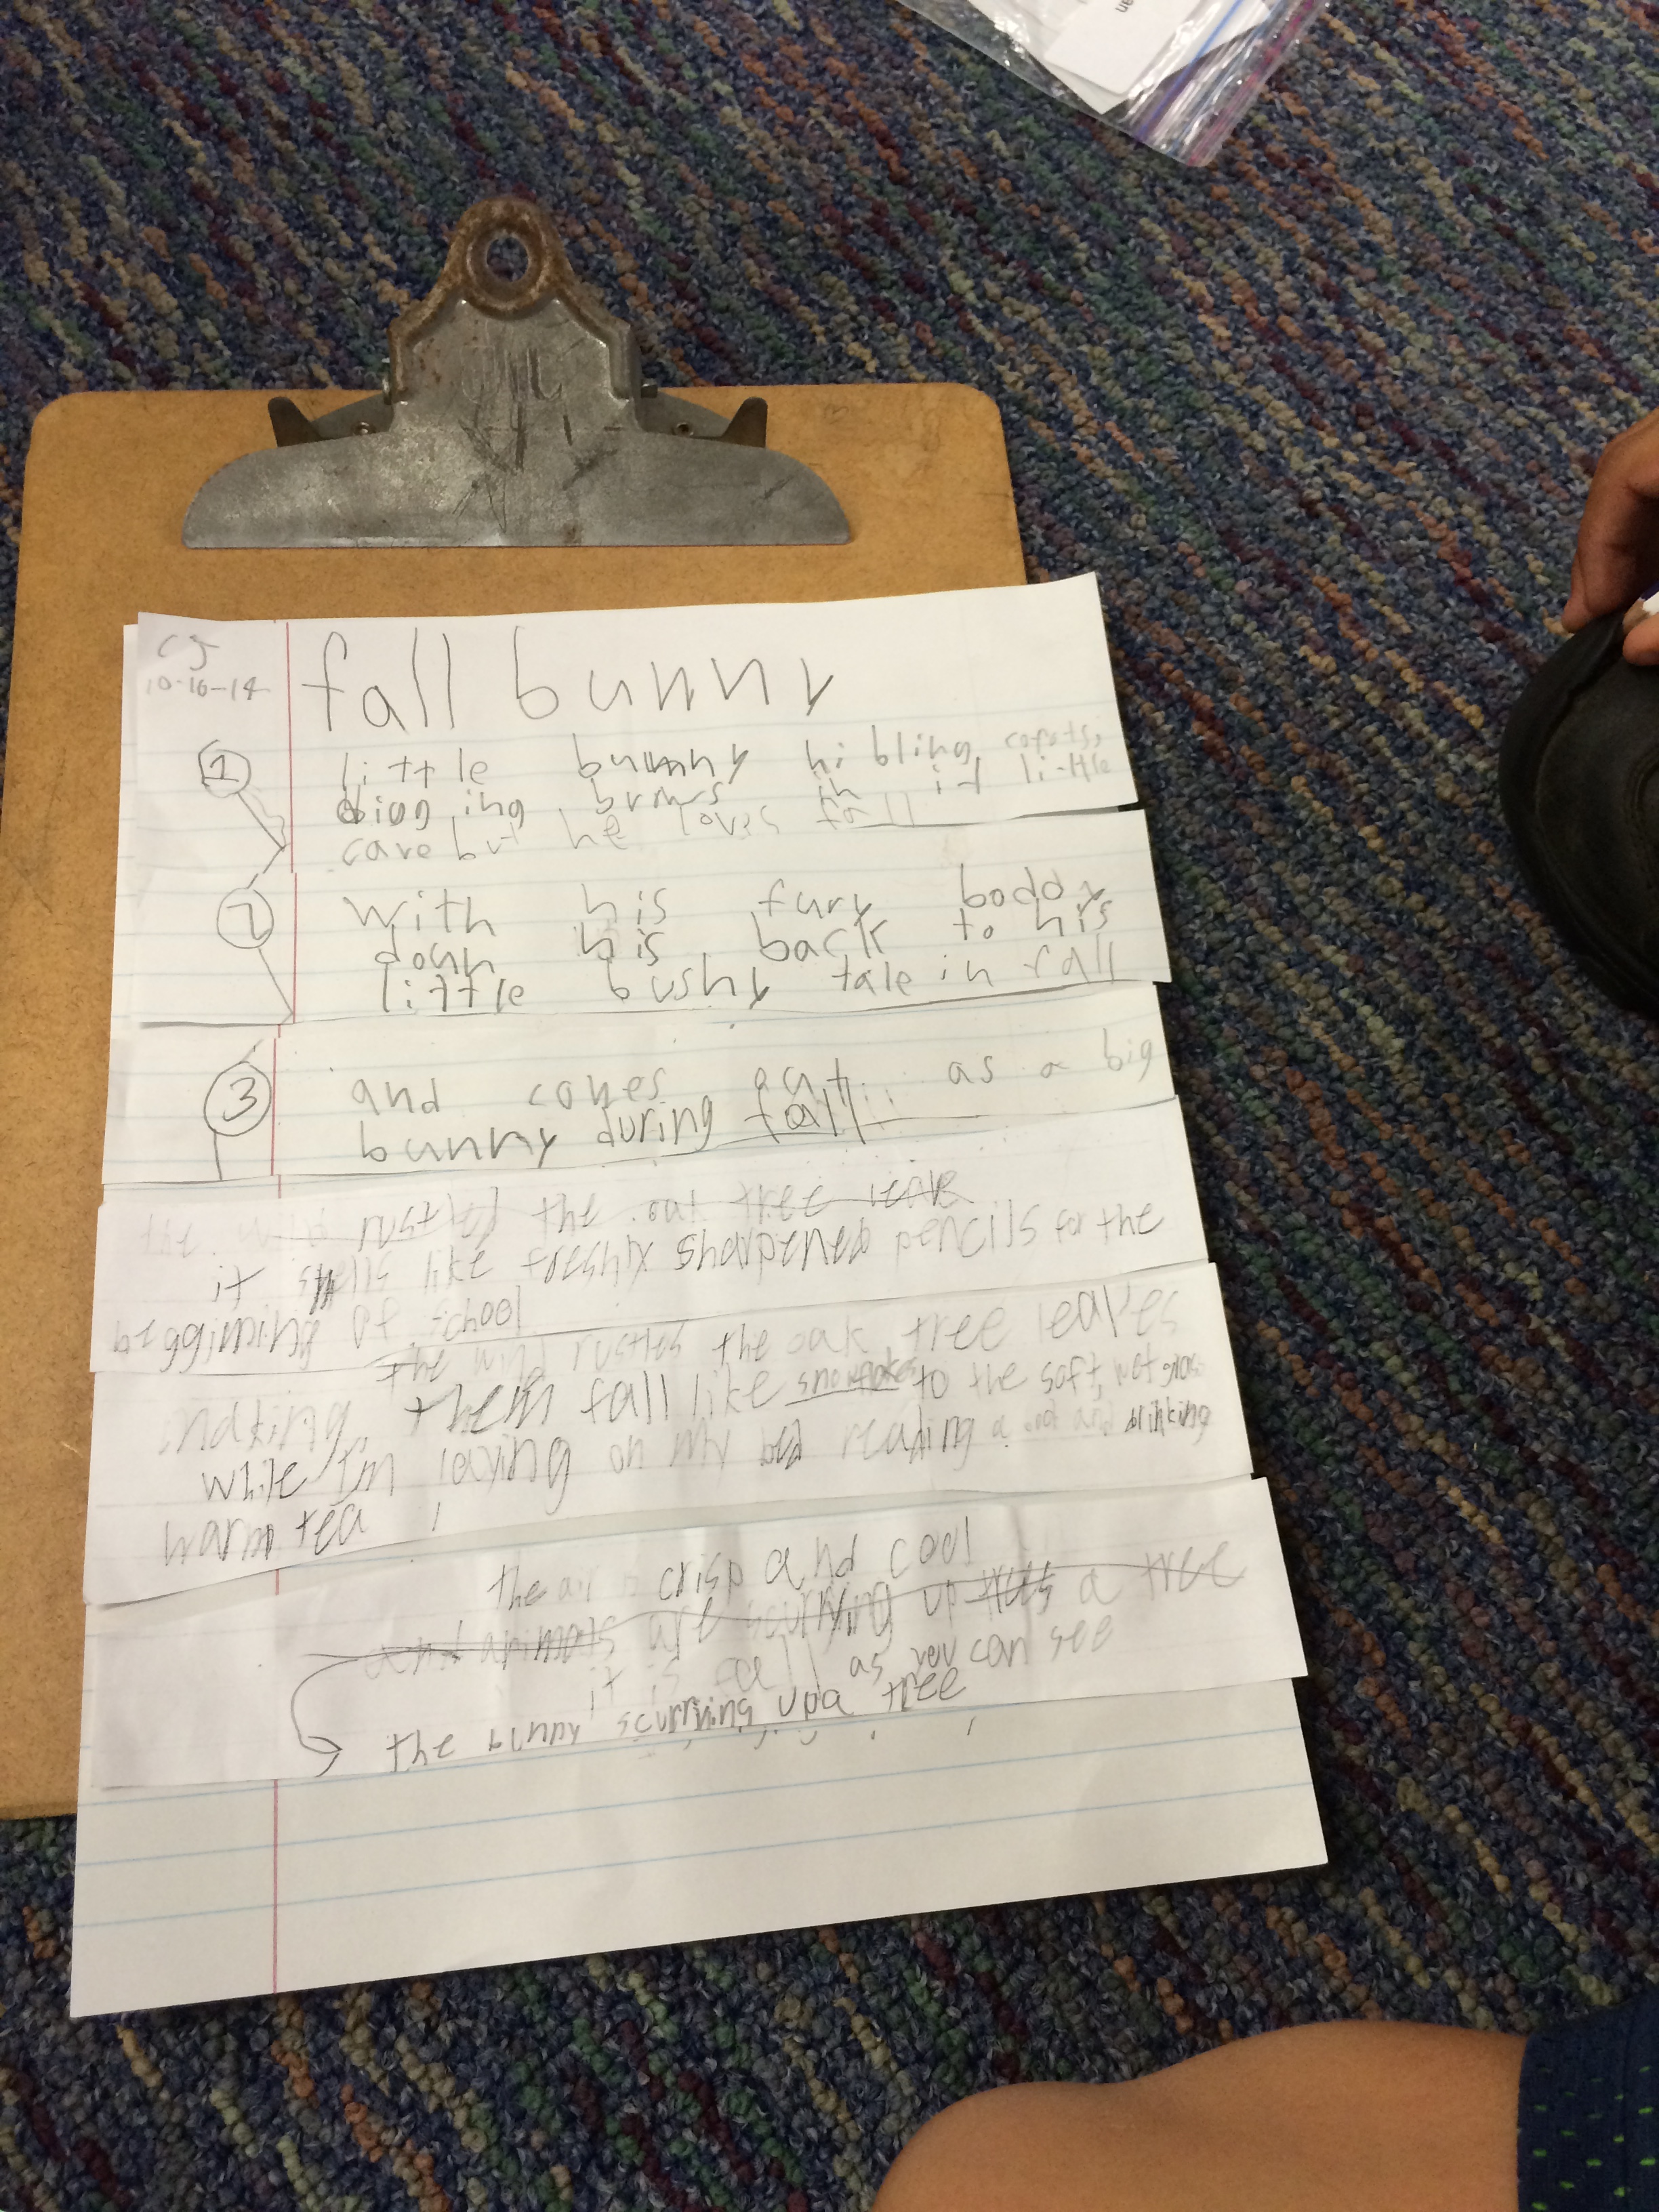 CJ
10-16-14
fall bunny
1
little bunny nibling
digging in it little
cave but he lovis fall
2
With his fury boddy
down his back to his
little bushy tale in fall
3
and comes out... as a big
bunny during fall...
the wind rustled the oak tree leave
it smells like freshly sharpened pencils for the
beggining of school
the wind rustles the oak tree leaves
making them fall like snowflakes to the soft, wet grass
while I'm laying on my bed reading a and drinking
warm tea
the air is crisp and cool
and animals are scurrying up trees a tree
it is fall as you can see
the bunny scurrying up a tree
an